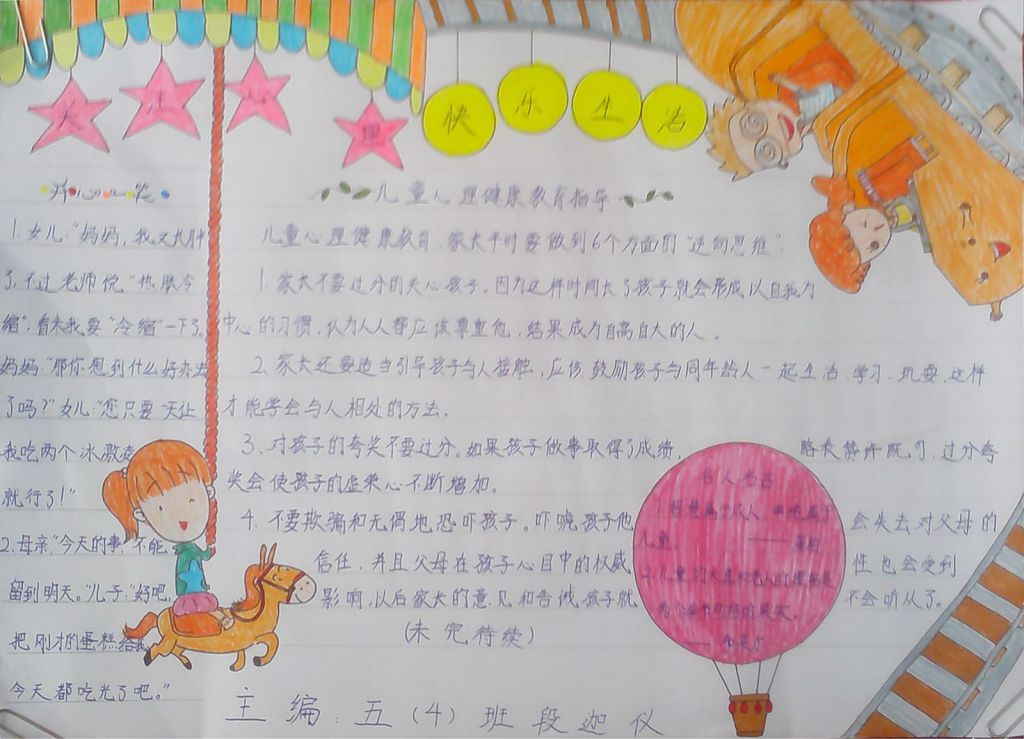 关注心理
快乐生活
开心一笑
1.女儿:"妈妈,我又长胖
了,不过老师说"热胀冷
缩",看来我要"冷缩"一下了。
妈妈:"那你想到什么好办法
了吗?"女儿:"您只要一天让
我吃两个冰激凌
就行了!"
2.母亲:"今天的事,不能
留到明天。"儿子:"好吧,
把刚才的蛋糕给我
今天都吃光了吧。"
儿童心理健康教育指导
儿童心理健康教育,家长平时要做到6个方面的"逆向思维":
1.家长不要过分的关心孩子,因为这样时间长了孩子就会形成以自我为
中心的习惯,认为人人都应该尊重他,结果成为自高自大的人。
2.家长还要适当引导孩子与人接触,应该鼓励孩子与同年龄人一起生活、学习、玩耍,这样
才能学会与人相处的方法。
3.对孩子的夸奖不要过分。如果孩子做事取得了成绩,略表赞许既可,过分夸
奖会使孩子的虚荣心不断增加。
4.不要欺骗和无谓地恐吓孩子。吓唬孩子他会失去对父母的
信任,并且父母在孩子心目中的权威性也会受到
影响,以后家长的意见和告诫,孩子就不会听从了。
(未完待续)
名人名言
儿童
主编:五(4)班段迦仪